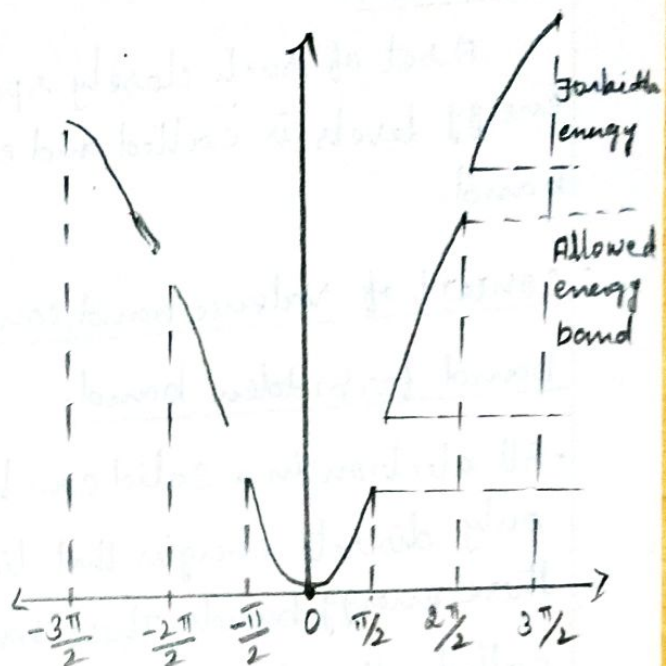 Forbidden
energy
Allowed
energy
band
-3π/2
-2π/2
-π/2
0
π/2
2π/2
3π/2